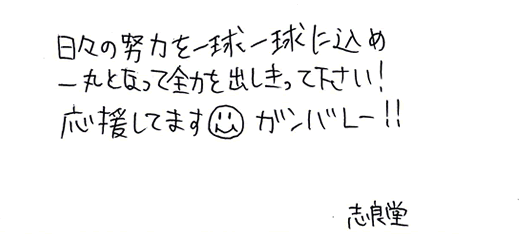 日々の努力を一球一球に込め
一丸となって全力を出しきって下さい!
応援してます☺ ガンバレー!!
志良堂